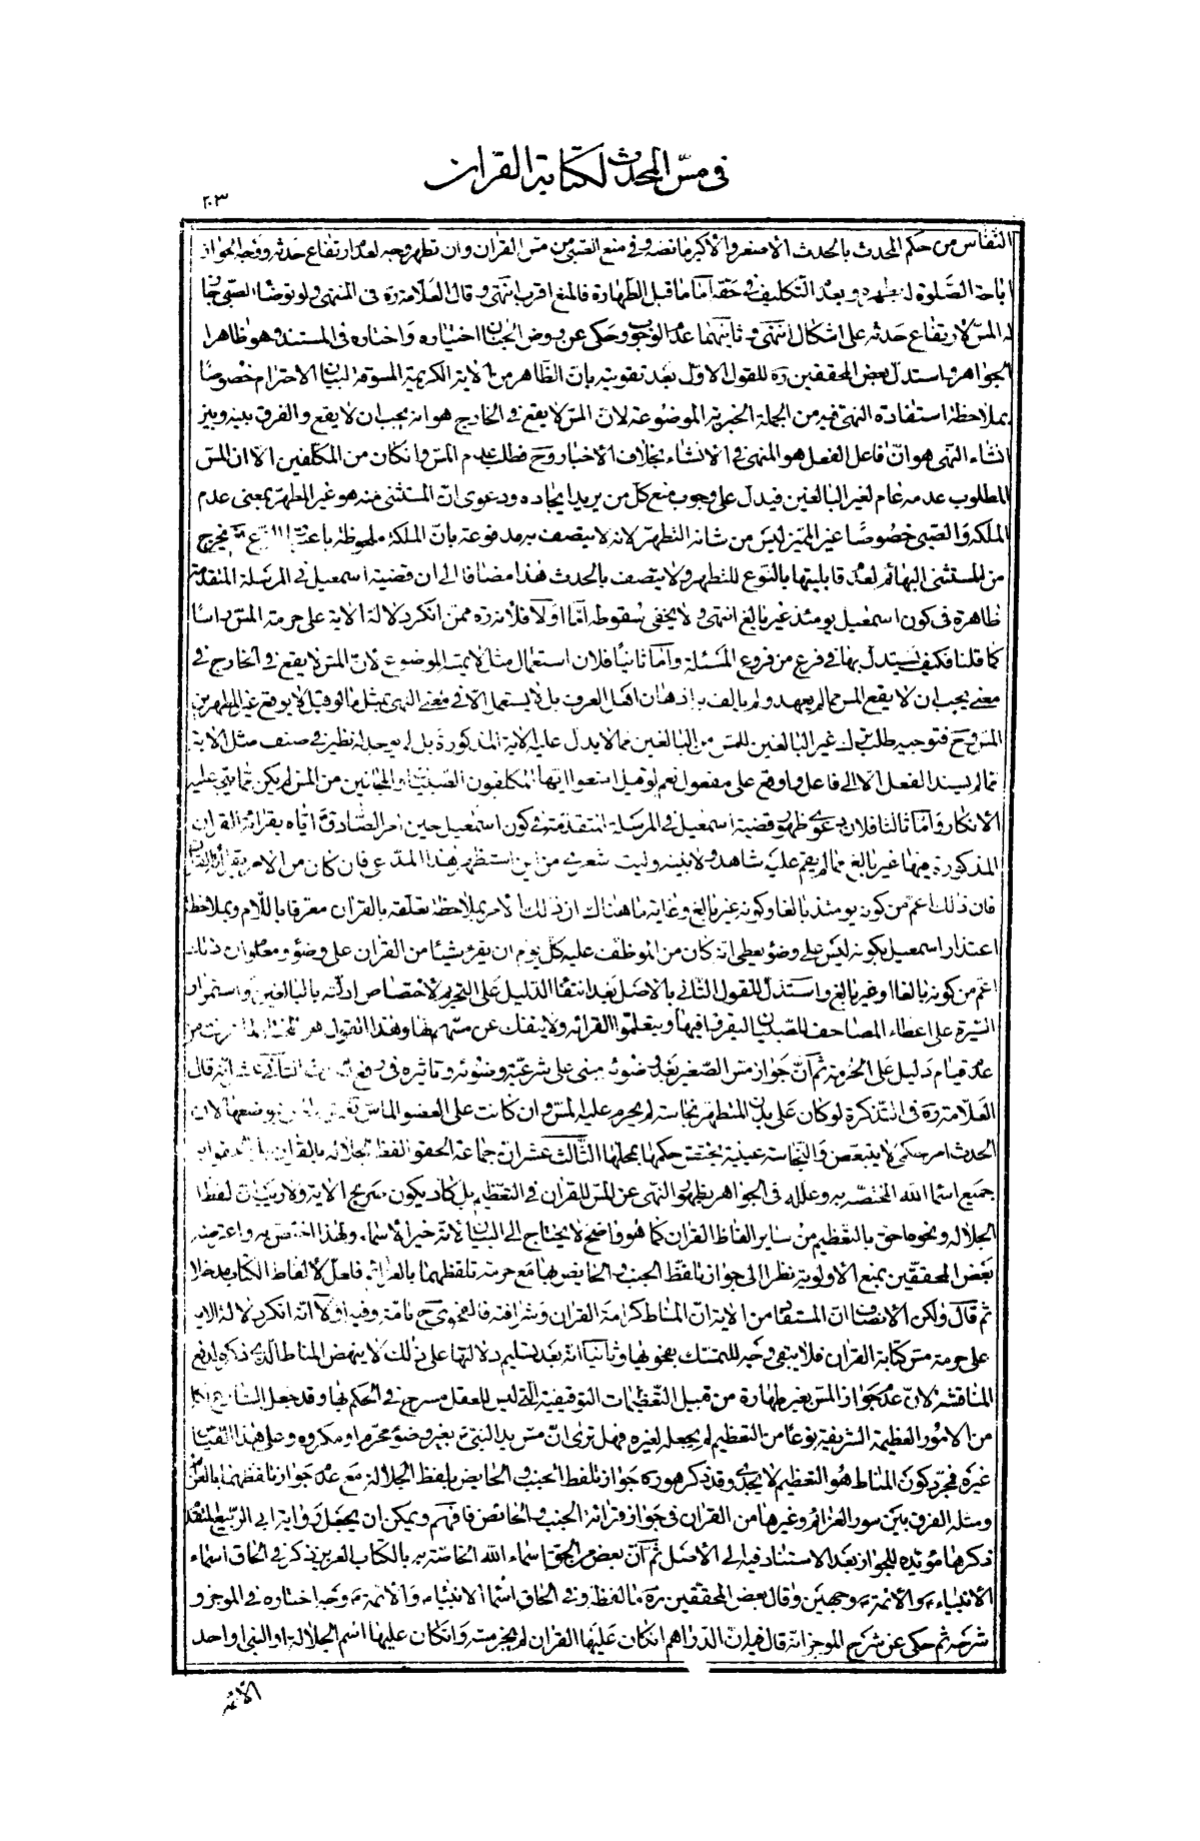 في مسّ المحدث لكتابة القران
٢٠٣
النفاس من حكم المحدث بالحدث الاصغر والاكبر ما نصه وفي منع الصبي من مس القران وان تطهر وجه لعدم ارتفاع حدثه ووجه الجواز
اباحة الصّلوة له بطهره وبعد التكليف في حقه امّا ما قبل الطّهارة فالمنع اقرب انتهى وقال العلامة ره في المنتهى ولو توضا الصّبي جاز
له المسّ لارتفاع حدثه على اشكال انتهى وثانيهما عدم الوجوب وحكى عن روض الجنان اختياره واختاره في المستند وهو ظاهر
الجواهر واستدل بعض المحققين ره للقول الاوّل بعد تقويته بان الظّاهر من الاية الكريمة المسوقة لبيان الاحترام خصوصًا
بملاحظة استفادة النهي فيه من الجملة الخبرية الموضوعة لان المسّ لا يقع في الخارج هو انه يجب ان لا يقع والفرق بينه وبين
انشاء النّهى هو انّ فاعل الفعل هو المنهى في الانشاء بخلاف الاخبار وح فطلب عدم المسّ وان كان من المكلفين الا ان المسّ
المطلوب عدمه عام لغير البالغين فيدل على وجوب منع كل من يريد ايجاده ودعوى انّ المستثنى منه هو غير المطهّر بمعنى عدم
الملكة والصّبي خصوصًا غير المميّز ليس من شانه التطهّر لانه لا يتصف به مدفوعة بانّ الملكة ملحوظة باعتبار النوع فيخرج
من المستثنى البهائم لعدم قابليتها بالنّوع للتطهر ولا يتصف بالحدث هذا مضافا الى ان قضية اسمعيل في المرسلة المتقدمة
ظاهرة في كون اسمعيل يومئذ غير بالغ انتهى ولا يخفى سقوطه امّا اولا فلانه ره ممن انكر دلالة الاية على حرمة المسّ راسًا
كما قلنا فكيف يستدل بها في فرع من فروع المسئلة وامّا ثانيًا فلان استعمال مثل لا يمسّه الموضوع لانّ المسّ لا يقع في الخارج في
معنى يجب ان لا يقع المسّ مما لم يعهد ولم يالف به اذهان اهل العرف بل لا يستعمل الا في معنى النهى بمثل ما لو قيل لا يوقع غير المطهرين
المسّ وح فتوجيه طلب ترك غير البالغين للمسّ من البالغين ممّا لا يدل عليه الاية المذكورة بل لم يوجد له نظير في صنف مثل الاية
ممّا لم يسند الفعل الا الى فاعل واوقع على مفعول نعم لو قيل امنعوا ايّها المكلفون الصّبيان والمجانين من المسّ لم يكن ممّا يتجه عليه
الانكار وامّا ثالثا فلان دعوى ظهور قضية اسمعيل في المرسلة المتقدمة في كون اسمعيل حين امر الصّادق ع ايّاه بقرائة القران
المذكورة فيها غير بالغ ممّا لم يقم عليه شاهد ولا بينة وليت شعرى من اين استظهر هذا المدّعى فان كان من الامر بقرائة القران
فان ذلك اعم من كونه يومئذ بالغا وكونه غير بالغ وغاية ما هناك ان ذلك الامر بملاحظة تعلّقه بالقران معرّفا باللّام وبملاحظة
اعتذار اسمعيل بكونه ليس على وضوء يعطى انه كان من الموظف عليه كل يوم ان يقرء شيئا من القران على وضوء ومعلوم ان ذلك
اعم من كونه بالغا او غير بالغ واستدل للقول الثانى بالاصل بعد انتفاء الدّليل على التحريم لاختصاص ادلّته بالبالغين واستمرار
السّيرة على اعطاء المصاحف للصّبيان ليقرؤا فيها ويتعلّموا القرائة ولا ينفك عن مسّهم لها وهذا القول هو المختار
عدم قيام دليل على الحرمة ثمّ انّ جواز مسّ الصّغير بعد وضوئه مبنى على شرعيّة وضوئه وتاثيره في رفع الحدث الثّانى عشر انه قال
العلامة ره في التّذكرة لو كان على بدن المتطهّر نجاسة لم يحرم عليه المسّ وان كانت على العضو الماسّ بموضعها لان
الحدث امر حكمى لا يتبعّض والنّجاسة عينية يختصّ حكمها بمحلّها الثّالث عشر ان جماعة الحقوا لفظ الجلالة بالقران بل
جميع اسماء الله المختصّة به وعلله في الجواهر بظهور النهى عن المسّ للقران في التّعظيم بل كاد يكون صريح الاية ولا ريب ان لفظ
الجلالة ونحوه احق بالتّعظيم من ساير الفاظ القران كما هو واضح لا يحتاج الى البيان لانه خير الاسماء ولهذا اختص به واعترضه
بعض المحققين بمنع الاولوية نظرا الى جواز تلفّظ الجنب والحايض بها مع حرمة تلفظهما بالعزائم فلعل لالفاظ الكتاب مدخلا
ثم قال ولكن الانصاف انّ المستفاد من الاية انّ المناط كرامة القران وشرافته فالفحوى ح تامّة وفيه اوّلا انه انكر دلالة الاية
على حرمة مسّ كتابة القران فلا يبقى وجه للتمسّك بفحويها وثانيًا انه بعد تسليم دلالتها على ذلك لا ينهض المناط الّذى ذكره لدفع
المناقشة لان عدم جواز المسّ بغير طهارة من قبيل التّعظيمات التوقيفيّة الّتي ليس للعقل مسرح في الحكم بها وقد جعل الشّارع
من الامور العظيمة الشريفة نوعًا من التّعظيم لم يجعله لغيره فهل ترى انّ مسّ يد النبيّ ص بغير وضوء محرّم او مكروه وعلى هذا القياس
غيره فمجرّد كون المناط هو التعظيم لا يجدى وقد ذكر هو ره جواز تلفظ الجنب والحايض بلفظ الجلالة مع عدم جواز تلفظهما بالعزائم
ومثله الفرق بين سور العزائم وغيرها من القران في جواز قرائة الجنب والحائض فافهم ويمكن ان يجعل رواية ابي الرّبيع المتقدم
ذكرها مؤيّدة للجواز بعد الاستناد فيه الى الاصل ثمّ انّ بعض من الحق اسماء الله الخاصّة به بالكتاب العزيز ذكر في الحاق اسماء
الانبياء ع والائمة ع وجهين وقال بعض المحققين ره ما لفظه وفي الحاق اسماء الانبياء ع والائمة ع وجه اختاره في الموجز و
شرحه ثم حكى عن شرح الموجز انّه قال فيه ان الدّراهم ان كان عليها القران لم يجز مسّه وان كان عليها اسم الجلالة او النبى او احد
الأئمة